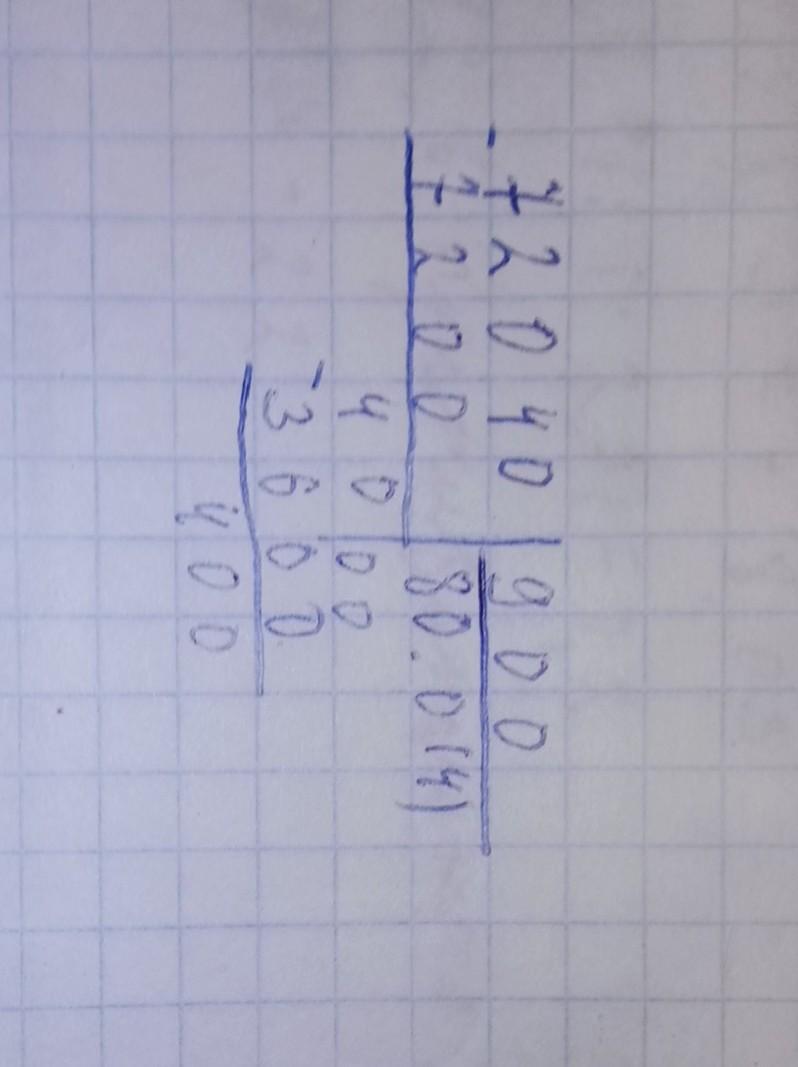 - 72040 | 900
7200 | 80.0(4)
4000
- 3600
400